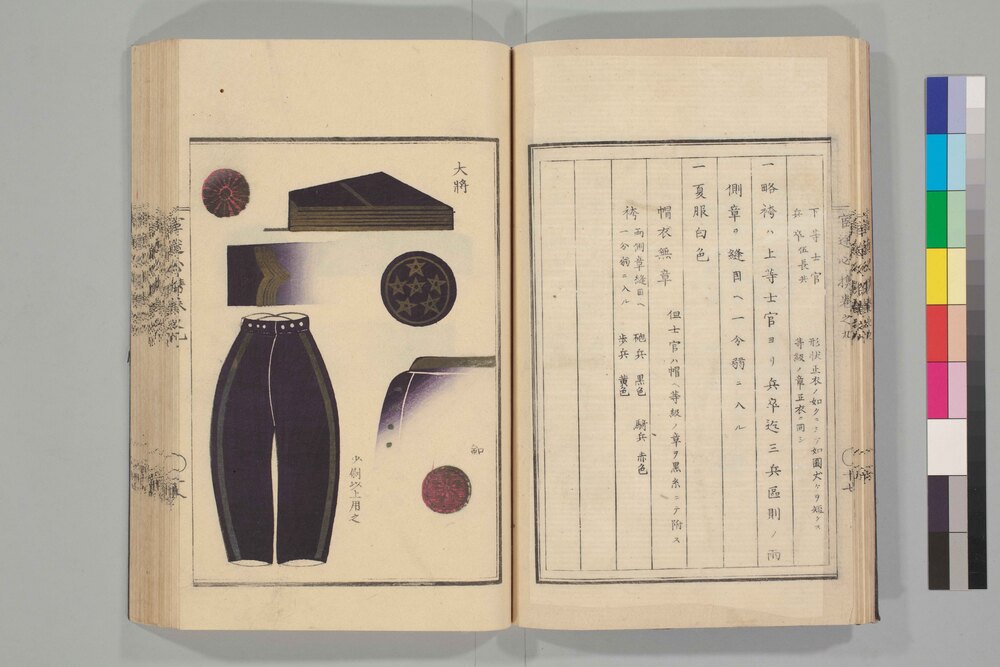 下等士官
兵卒伍長共
形状正衣ノ如クニシテ如圖丈ケヲ短クス
等級ノ章正衣ニ同シ
一略袴ハ上等士官ヨリ兵卒迄三兵區則ノ両
側章ヲ縫目ヘ一分弱ニ入ル
一夏服白色
帽衣無章
但士官ハ帽ヘ等級ノ章ヲ黒糸ニテ附ス
袴
両側章縫目ヘ
一分弱ニ入ル
砲兵 黒色 騎兵 赤色
歩兵 黄色
大將
釦
少個以上用之